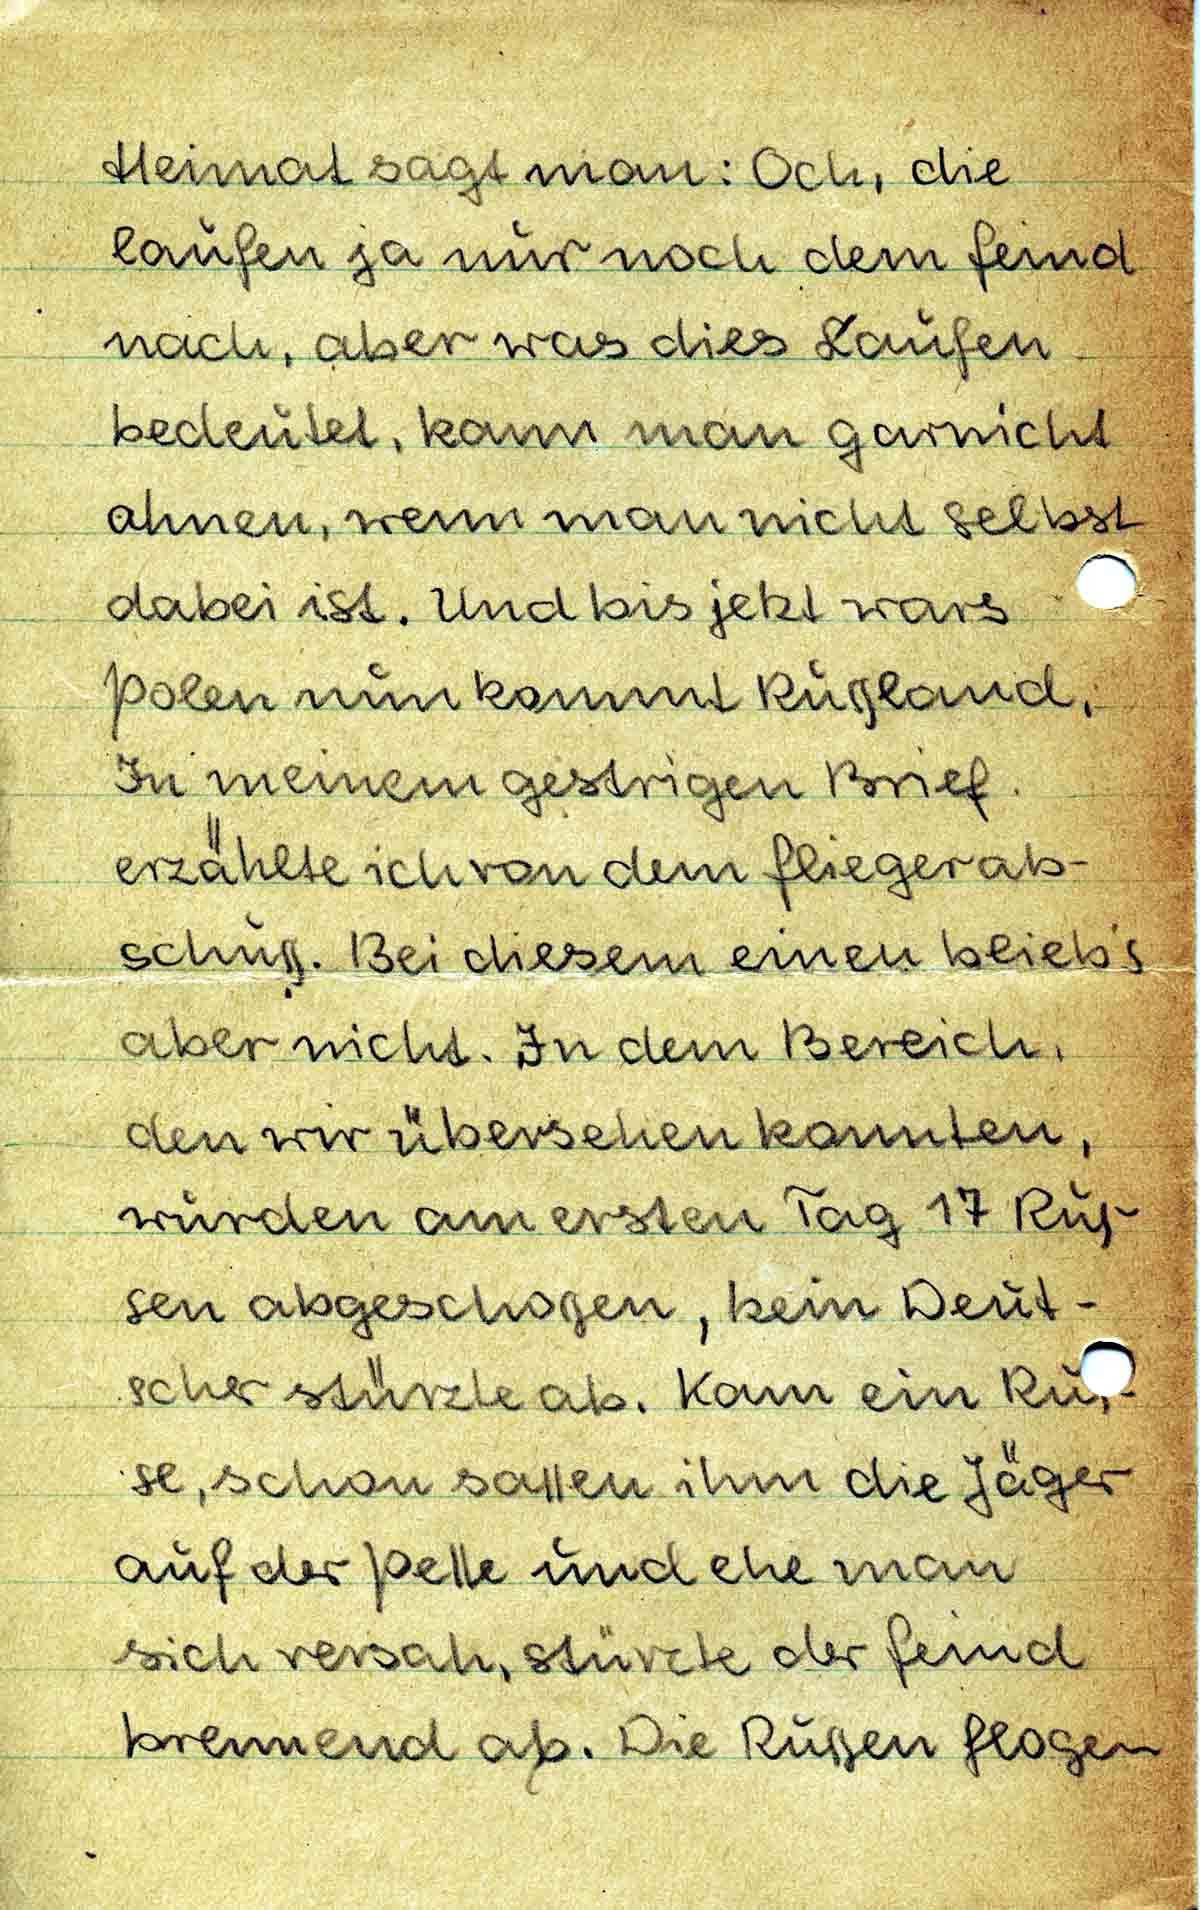 Heimat sagt man: Och, die
laufen ja nur noch dem Feind
nach, aber was dies Laufen
bedeutet, kann man garnicht
ahnen, wenn man nicht selbst
dabei ist. Und bis jetzt wars
Polen nun kommt Rußland.
In meinem gestrigen Brief
erzählte ich von dem Fliegerab-
schuß. Bei diesem einen blieb's
aber nicht. In dem Bereich,
den wir übersehen konnten,
wurden am ersten Tag 17 Rus-
sen abgeschoßen, kein Deut-
scher stürzte ab. Kam ein Rus-
se, schon saßen ihm die Jäger
auf der Pelle und ehe man
sich versah, stürzte der Feind
brennend ab. Die Rußen flogen